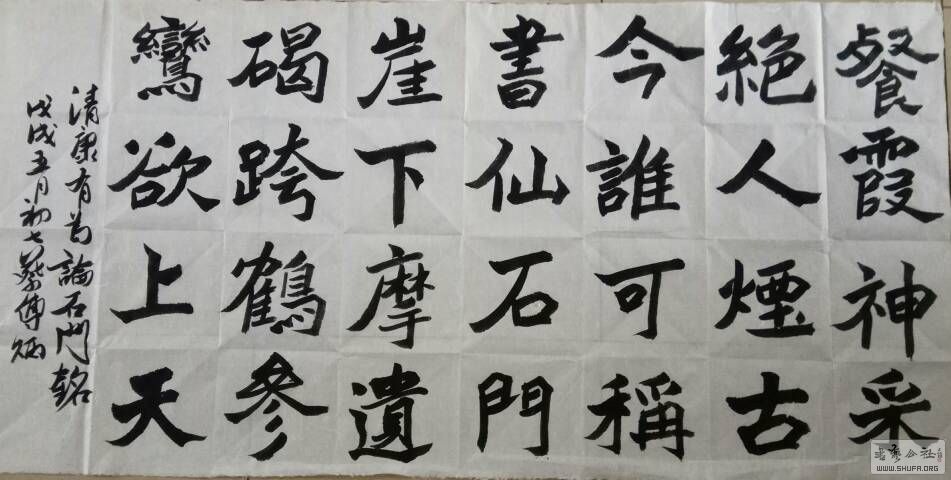 餐霞神采
絕人煙古
今誰可稱
書仙石門
崖下摩遺
碣跨鶴參
鸞欲上天
清康有為論石門銘
戊戌五月初七蔡傳炳
書藝公社
WWW.SHUFA.ORG